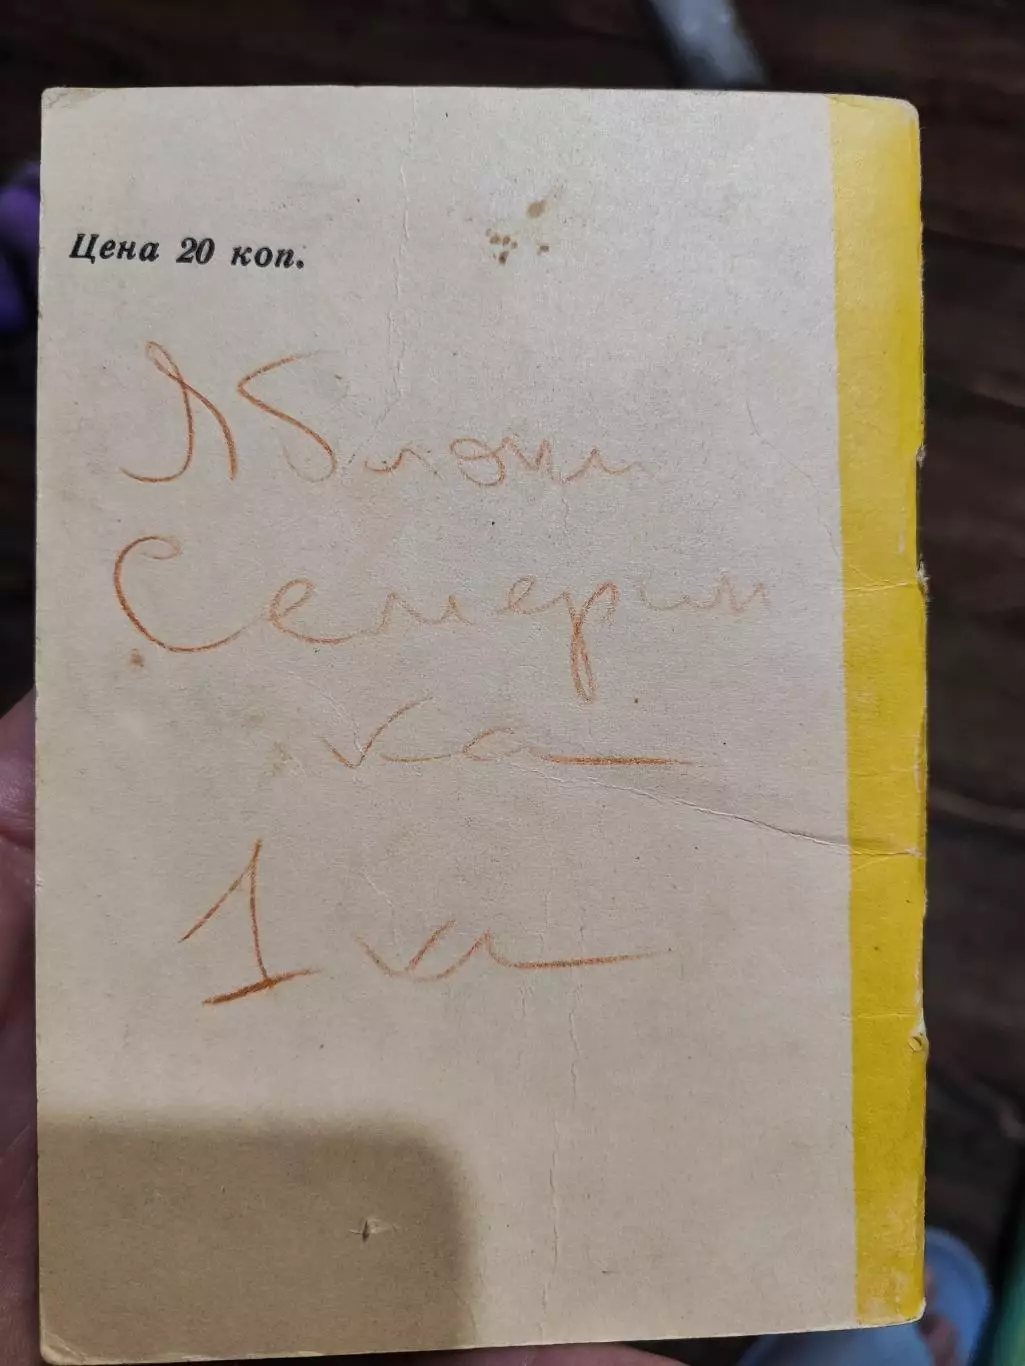 Цена 20 коп.
Яблони
Семерин
ка
1 кл